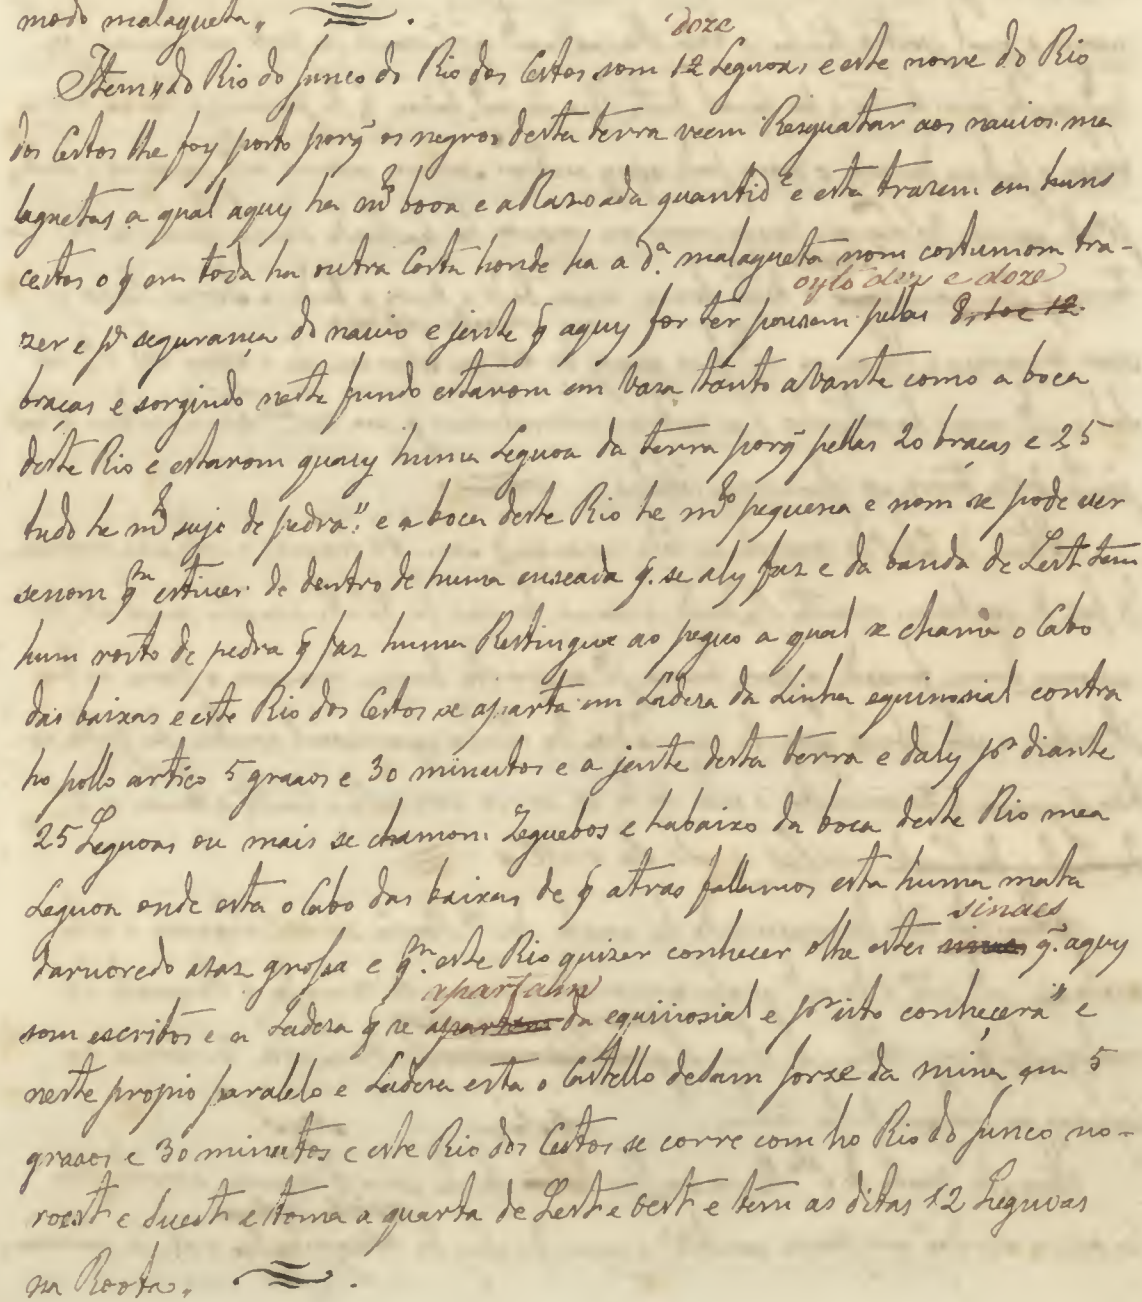 modo malagueta„
doze
Item„ do Rio do Junco do Rio dos Cestos som 12 Leguoas e este nome do Rio
dos Cestos lhe foy posto porq̃ os negros desta terra veem Resguatar aos nauios ma
laguetas a qual aquy ha mᵗᵒ booa e aRazoada quantidᵉ e esta trazem em huns
cestos o q̃ em toda ha outra Costa honde ha a dª malagueta nom costumom tra-
oyto dez e doze
zer e pª segurança do nauio e jente q̃ aquy for ter pousem pellas 8, 10 e 12
braças e sorgindo neste fundo estarom em vaza tanto avante como a boca
deste Rio e estarom quasy huma Leguoa da terra porq̃ pellas 20 braças e 25
tudo he mᵗᵒ sujo de pedra„ e a boca deste Rio he mᵗᵒ pequena e nom se pode ver
senom qᵐ estiuer de dentro de huma enseada q̃. se aly faz e da banda de Leste tem
hum rosto de pedra q̃ faz huma Restingua ao peguo a qual se chama o Cabo
das baixas e este Rio dos Cestos se aparta em Ladeza da Linha equinosial contra
ho pollo artico 5 graaos e 30 minutos e a jente desta terra e daly pᵒʳ diante
25 Leguoas ou mais se chamom Zeguebos e habaixo da boca deste Rio mea
Leguoa onde esta o Cabo das baixas de q̃ atras fallamos esta huma mata
sinaes
daruoredo asaz grossa e qᵐ. este Rio quizer conhecer olhe estes q̃. aquy
apartam
som escritos e a Ladeza q̃ se da equinosial e pᵒʳ isto conheçerá„ e
neste propio paralelo e Ladeza esta o Castello desam Jorze da mina em 5
graaos e 30 minutos e este Rio dos Cestos se corre com ho Rio do Junco no-
roest e suest e toma a quarta de Leste oest e tem as ditas 12 Leguoas
na Roota„